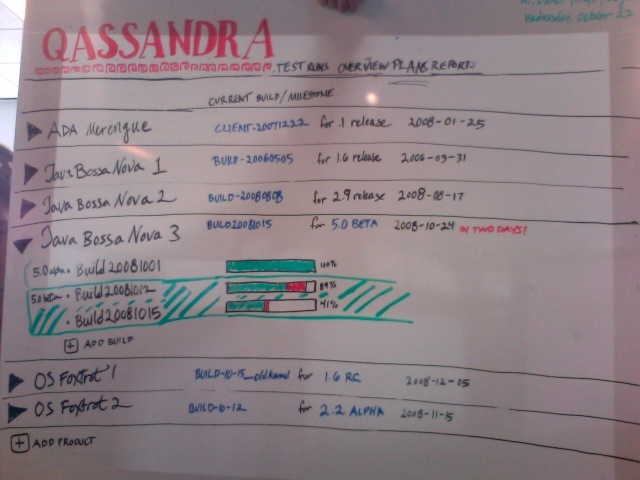 Wednesday, October 22
QASSANDRA
TEST RUNS OVERVIEW PLANS REPORTS
CURRENT BUILD/MILESTONE
ADA Merengue CLIENT-20071222 for .1 release 2008-01-25
Java Bossa Nova 1 BUILD-20060505 for 1.6 release 2006-05-31
Java Bossa Nova 2 BUILD-20080808 for 2.9 release 2008-08-17
Java Bossa Nova 3 BUILD20081015 for 5.0 BETA 2008-10-24 IN TWO DAYS!
5.0 alpha • Build 20081001 100%
5.0 beta • Build 20081012 89%
• Build 20081015 41%
+ ADD BUILD
OS Foxtrot 1 BUILD-10-15_oldkernel for 1.6 RC 2008-12-05
OS Foxtrot 2 BUILD-10-12 for 2.2 ALPHA 2008-11-15
+ ADD PRODUCT